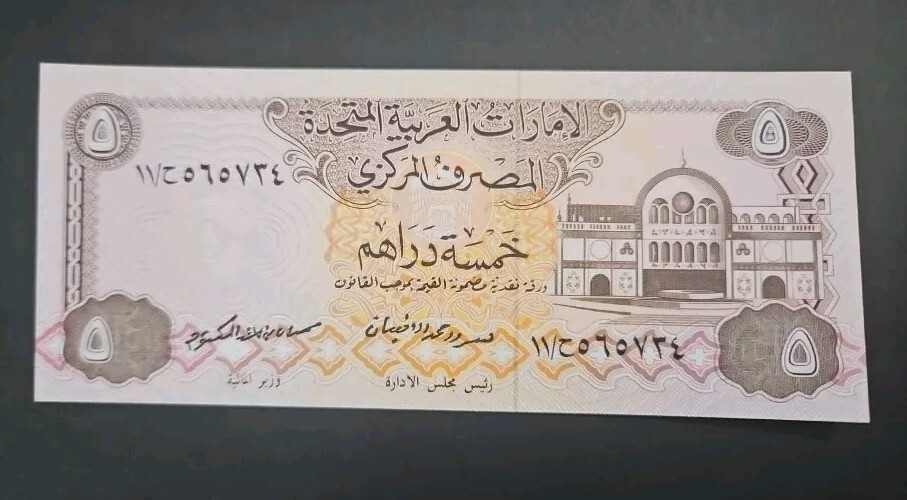 ٥
الإمارات العربية المتحدة
٥
المصرف المركزي
١١/ح٥٦٥٧٣٤
خمسة دراهم
ورقة نقدية مضمونة القيمة بموجب القانون
١١/ح٥٦٥٧٣٤
٥
٥
رئيس مجلس الادارة
وزير المالية